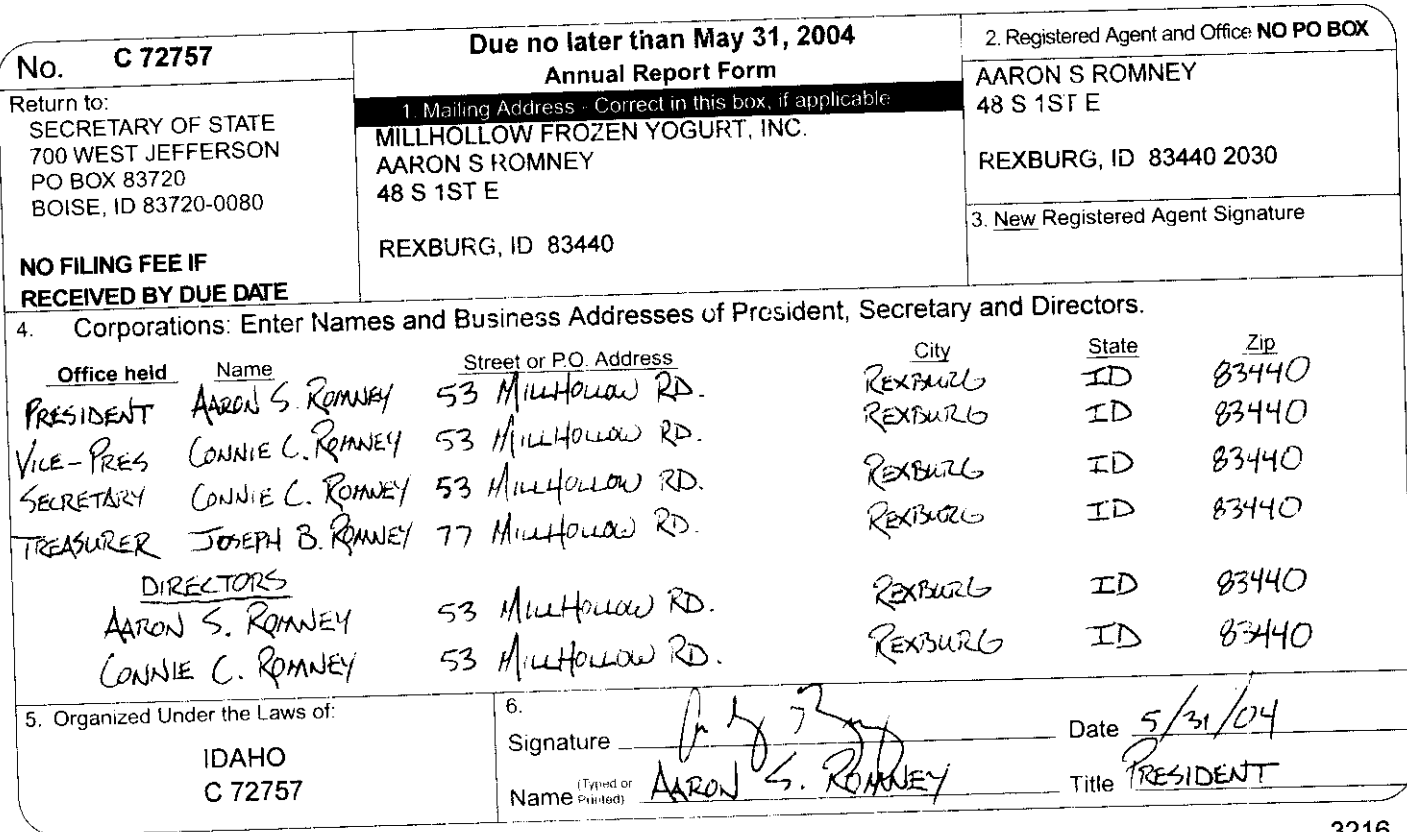 No. C 72757
Return to:
SECRETARY OF STATE
700 WEST JEFFERSON
PO BOX 83720
BOISE, ID 83720-0080
NO FILING FEE IF
RECEIVED BY DUE DATE
Due no later than May 31, 2004
Annual Report Form
1. Mailing Address - Correct in this box, if applicable
MILLHOLLOW FROZEN YOGURT, INC.
AARON S ROMNEY
48 S 1ST E
REXBURG, ID 83440
2. Registered Agent and Office NO PO BOX
AARON S ROMNEY
48 S 1ST E
REXBURG, ID 83440 2030
3. New Registered Agent Signature
4. Corporations: Enter Names and Business Addresses of President, Secretary and Directors.
Office held Name Street or P.O. Address City State Zip
PRESIDENT AARON S. ROMNEY 53 MILLHOLLOW RD. REXBURG ID 83440
VICE-PRES CONNIE C. ROMNEY 53 MILLHOLLOW RD. REXBURG ID 83440
SECRETARY CONNIE C. ROMNEY 53 MILLHOLLOW RD. REXBURG ID 83440
TREASURER JOSEPH B. ROMNEY 77 MILLHOLLOW RD. REXBURG ID 83440
DIRECTORS
AARON S. ROMNEY 53 MILLHOLLOW RD. REXBURG ID 83440
CONNIE C. ROMNEY 53 MILLHOLLOW RD. REXBURG ID 83440
5. Organized Under the Laws of:
IDAHO
C 72757
6.
Signature Date 5/31/04
Name (Typed or Printed) AARON S. ROMNEY Title PRESIDENT
3216